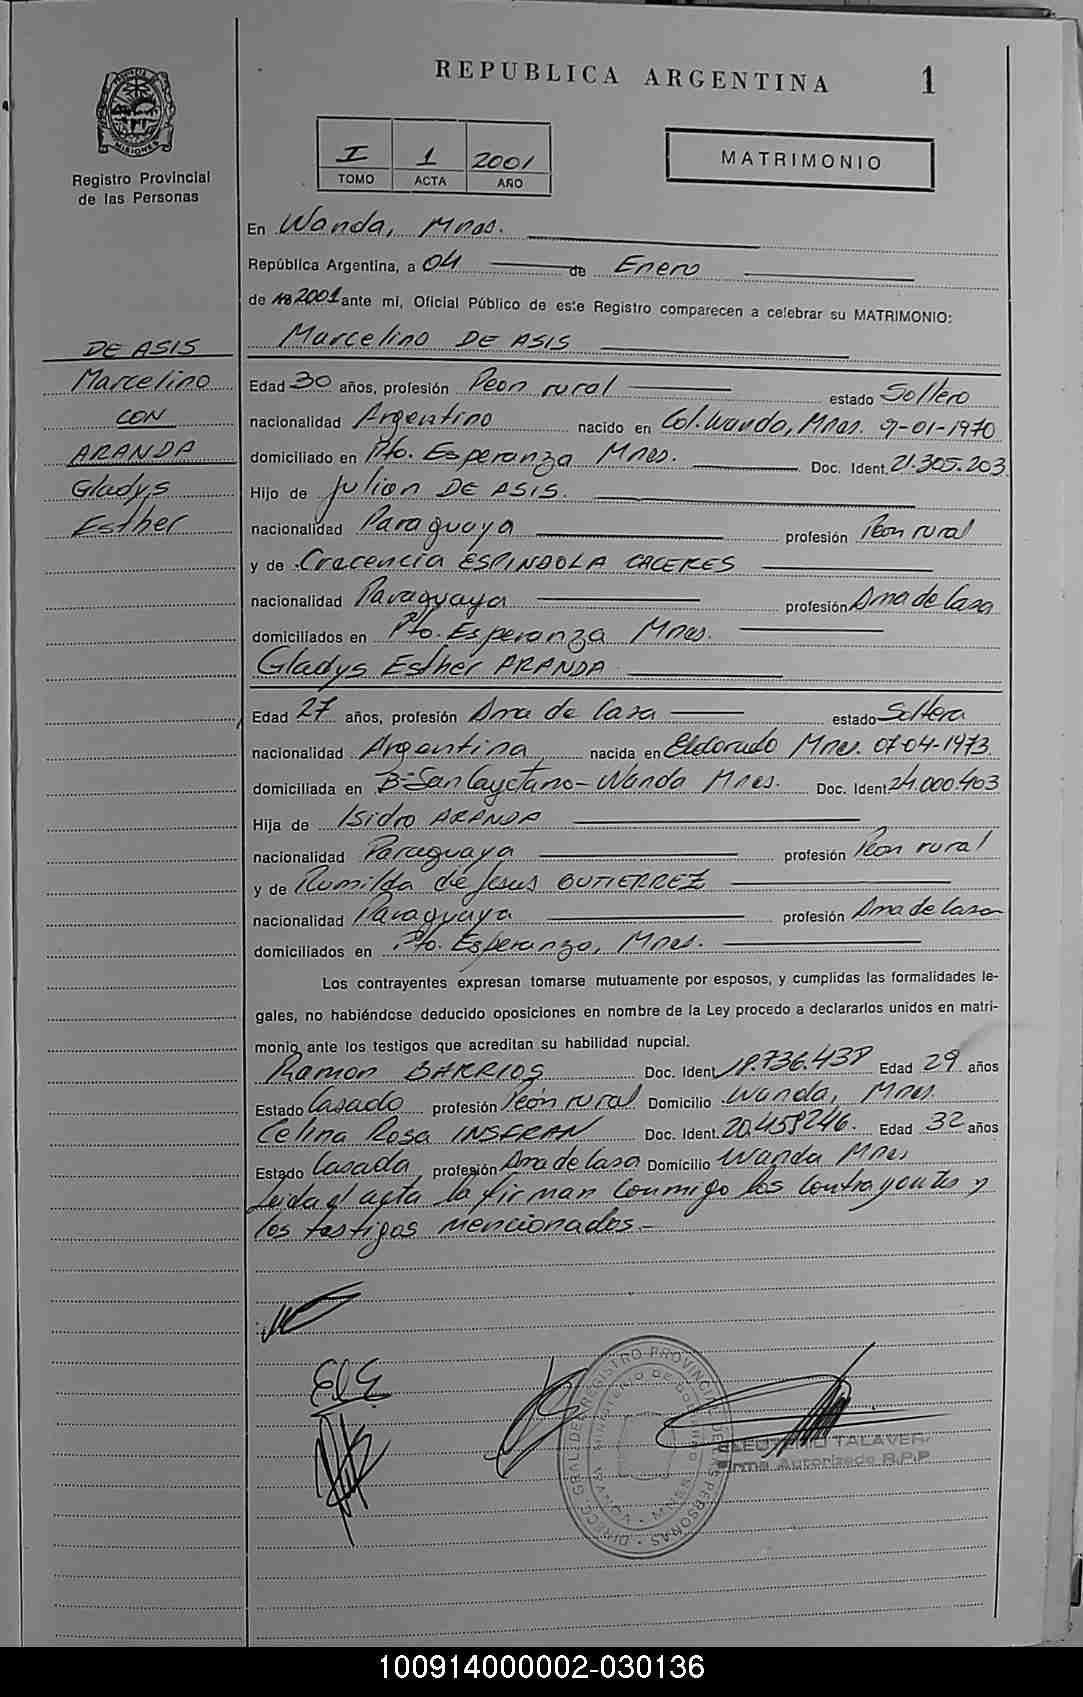 REPUBLICA ARGENTINA 1
MISIONES
Registro Provincial
de las Personas
I 1 2001
TOMO ACTA AÑO
MATRIMONIO
En Wanda, Mnes.
República Argentina, a 04 de Enero
de 2001 ante mí, Oficial Público de este Registro comparecen a celebrar su MATRIMONIO:
DE ASIS
Marcelino
CON
ARANDA
Gladys
Esther
Marcelino DE ASIS
Edad 30 años, profesión Peon rural estado Soltero
nacionalidad Argentino nacido en Col. Wanda, Mnes. 9-01-1970
domiciliado en Pto. Esperanza Mnes. Doc. Ident. 21.305.203
Hijo de Julian DE ASIS.
nacionalidad Paraguaya profesión Peon rural
y de Crecencia ESPINDOLA CACERES
nacionalidad Paraguaya profesión Ama de Casa
domiciliados en Pto. Esperanza Mnes.
Gladys Esther ARANDA
Edad 27 años, profesión Ama de Casa estado Soltera
nacionalidad Argentina nacida en Eldorado Mnes. 07-04-1973
domiciliada en B- San Cayetano - Wanda Mnes. Doc. Ident 24.000.403
Hija de Isidro ARANDA
nacionalidad Paraguaya profesión Peon rural
y de Romilda de Jesus GUTIERREZ
nacionalidad Paraguaya profesión Ama de Casa
domiciliados en Pto. Esperanza, Mnes.
Los contrayentes expresan tomarse mutuamente por esposos, y cumplidas las formalidades le-
gales, no habiéndose deducido oposiciones en nombre de la Ley procedo a declararlos unidos en matri-
monio ante los testigos que acreditan su habilidad nupcial.
Ramon BARRIOS Doc. Ident. 18.736.438 Edad 29 años
Estado Casado profesión Peón rural Domicilio Wanda, Mnes.
Celina Rosa INSFRAN Doc. Ident. 20.458246. Edad 32 años
Estado Casada profesión Ama de Casa Domicilio Wanda Mnes
Leida el acta la firman conmigo los contrayentes y
los testigos mencionados.-
TALAVERA
Firma Autorizada R.P.P.
100914000002-030136